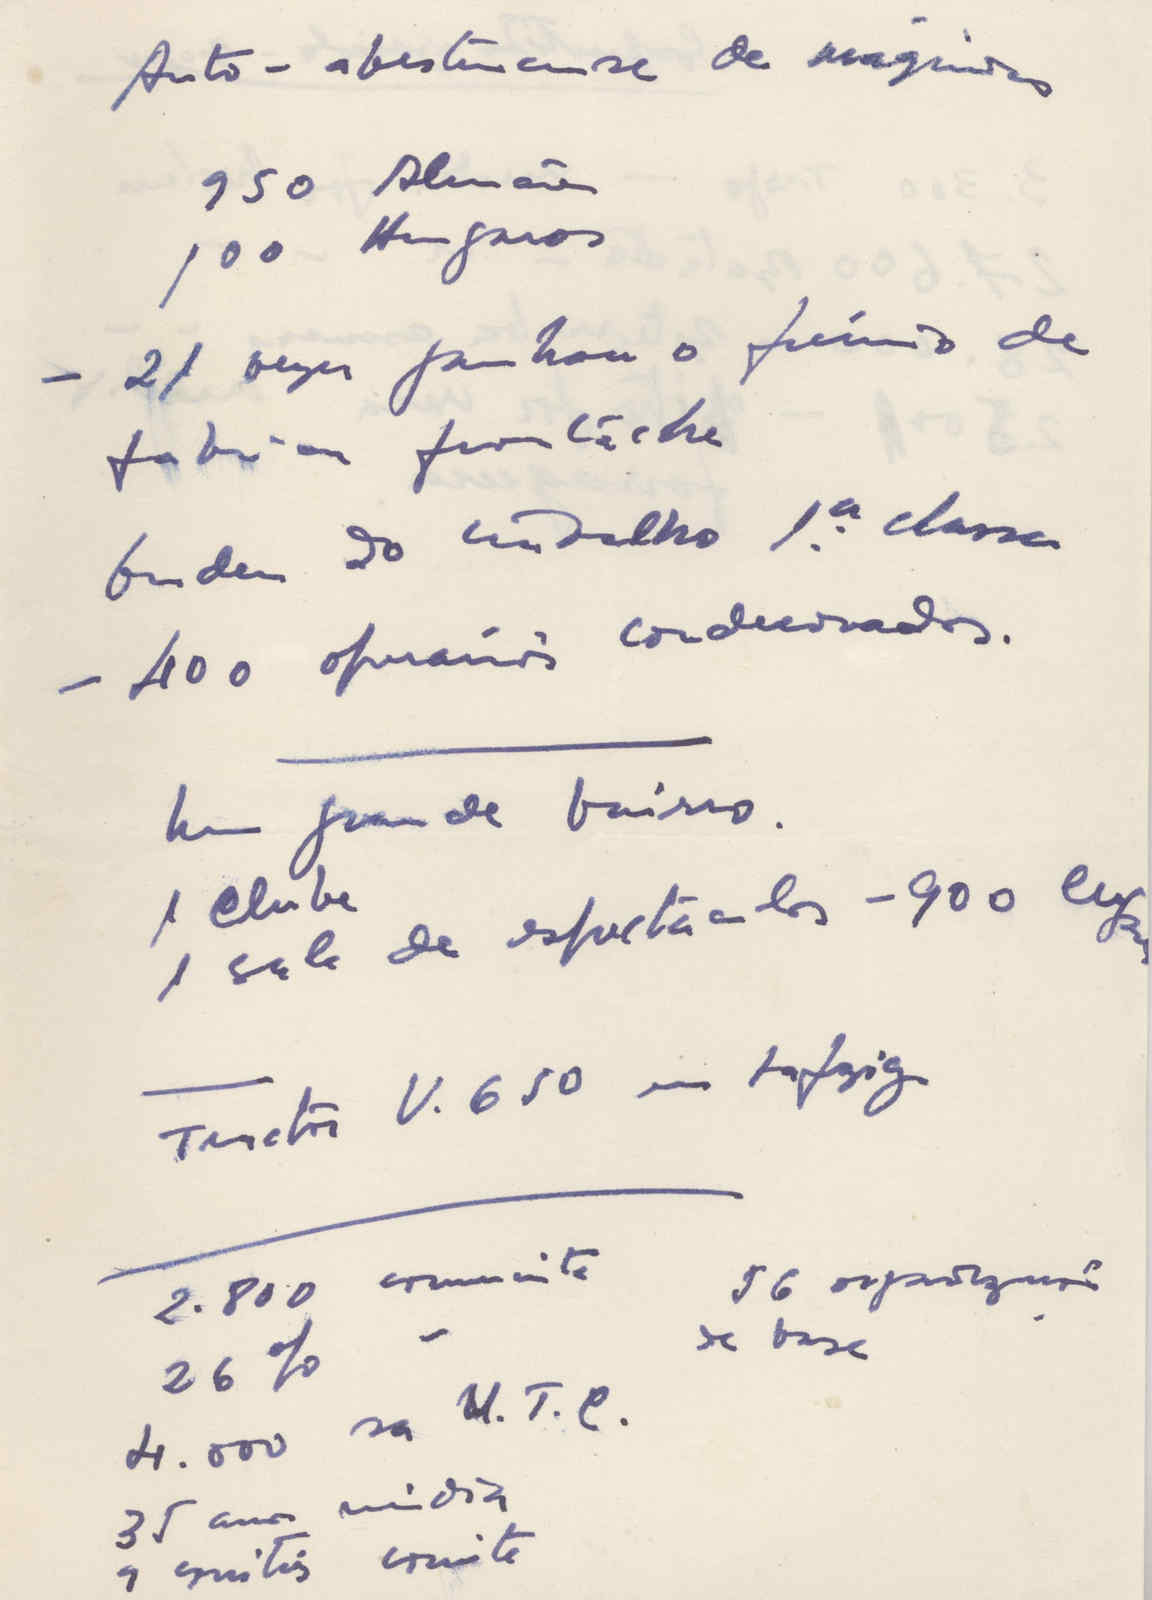 Auto-abestecense de máquinas
950 Alemães
100 Hungaros
- 21 vezes ganhou o prémio de
fabrica
Orden do trabalho 1.ª classe
- 400 operários condecorados.
Um grande bairro.
1 Clube
1 sala de espectáculos - 900 lugares
Tractor U. 650 em
2.800 comunista
56 organizações
de base
26 % -
4.000 na U.T.C.
35 anos média
9 comités comite